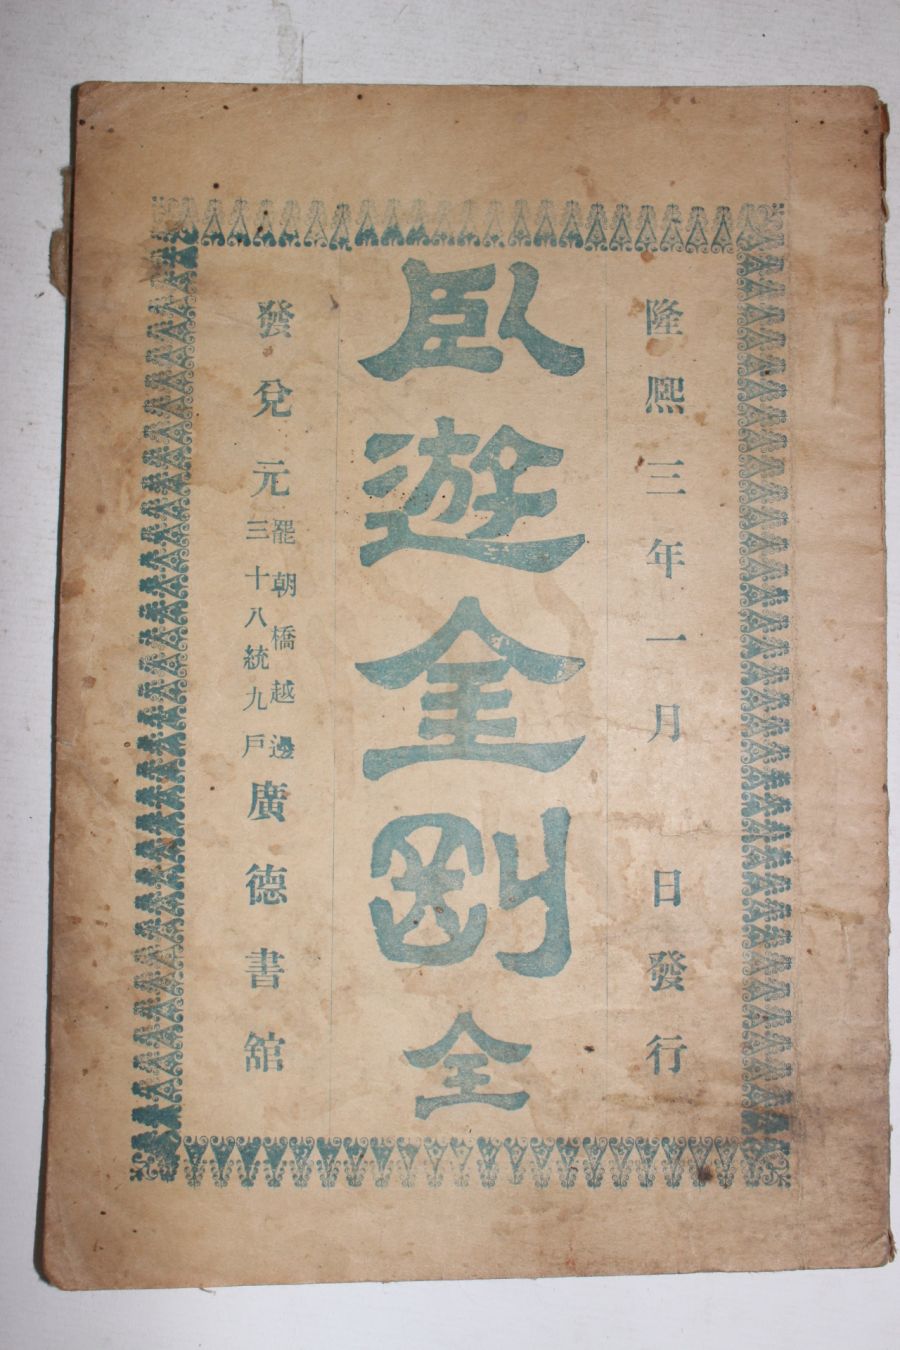 隆熙三年一月 日發行
臥遊金剛 全
發兌元
罷朝橋越邊
三十八統九戶
廣德書舘